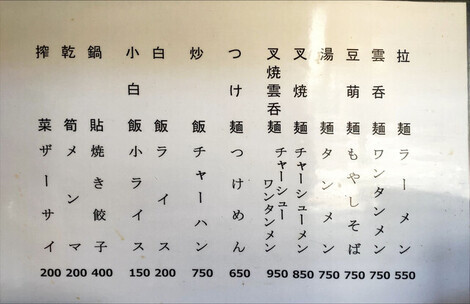 拉麺 ラーメン 550
雲呑麺 ワンタンメン 750
豆萌麺 もやしそば 750
湯麺 タンメン 750
叉焼麺 チャーシューメン 850
叉焼雲呑麺 チャーシューワンタンメン 950
つけ麺 つけめん 650
炒飯 チャーハン 750
白飯 ライス 200
小白飯 小ライス 150
鍋貼 焼き餃子 400
乾筍 メンマ 200
搾菜 ザーサイ 200